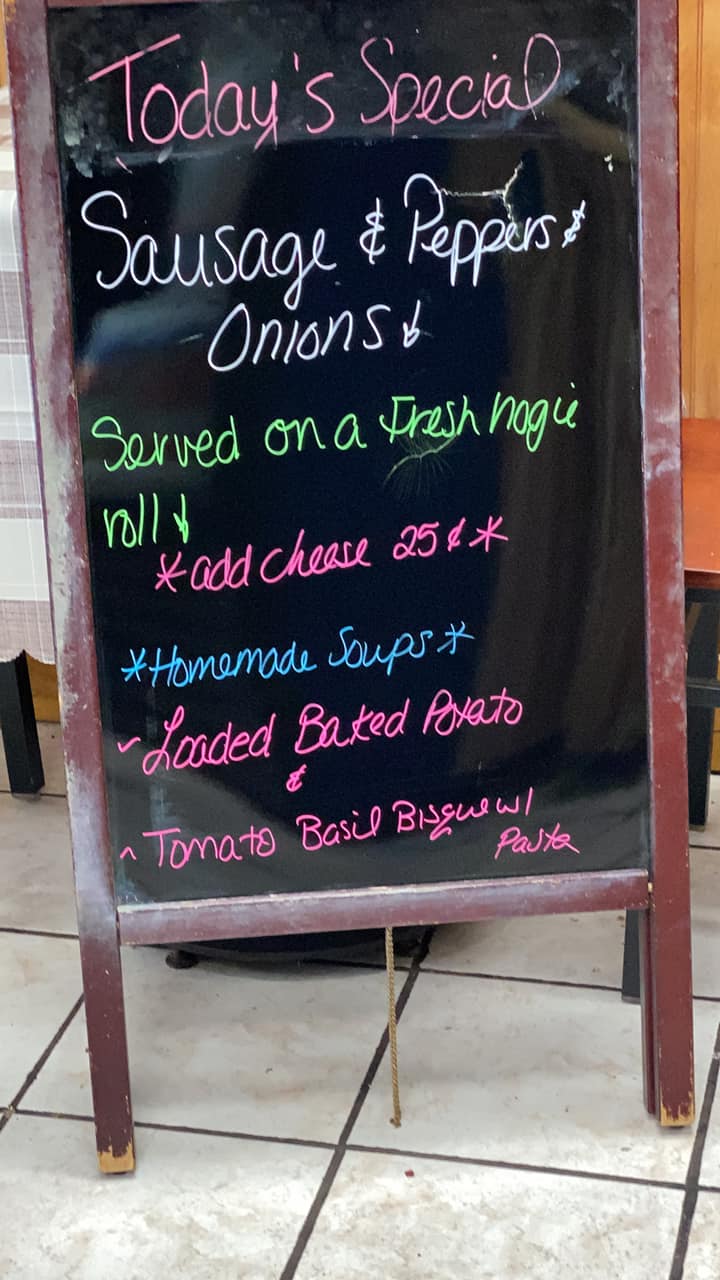 Today's Special
Sausage & Peppers &
Onions
Served on a Fresh hogie
roll
*add cheese 25¢*
*Homemade Soups*
Loaded Baked Potato
&
Tomato Basil Bisque w/
Pasta